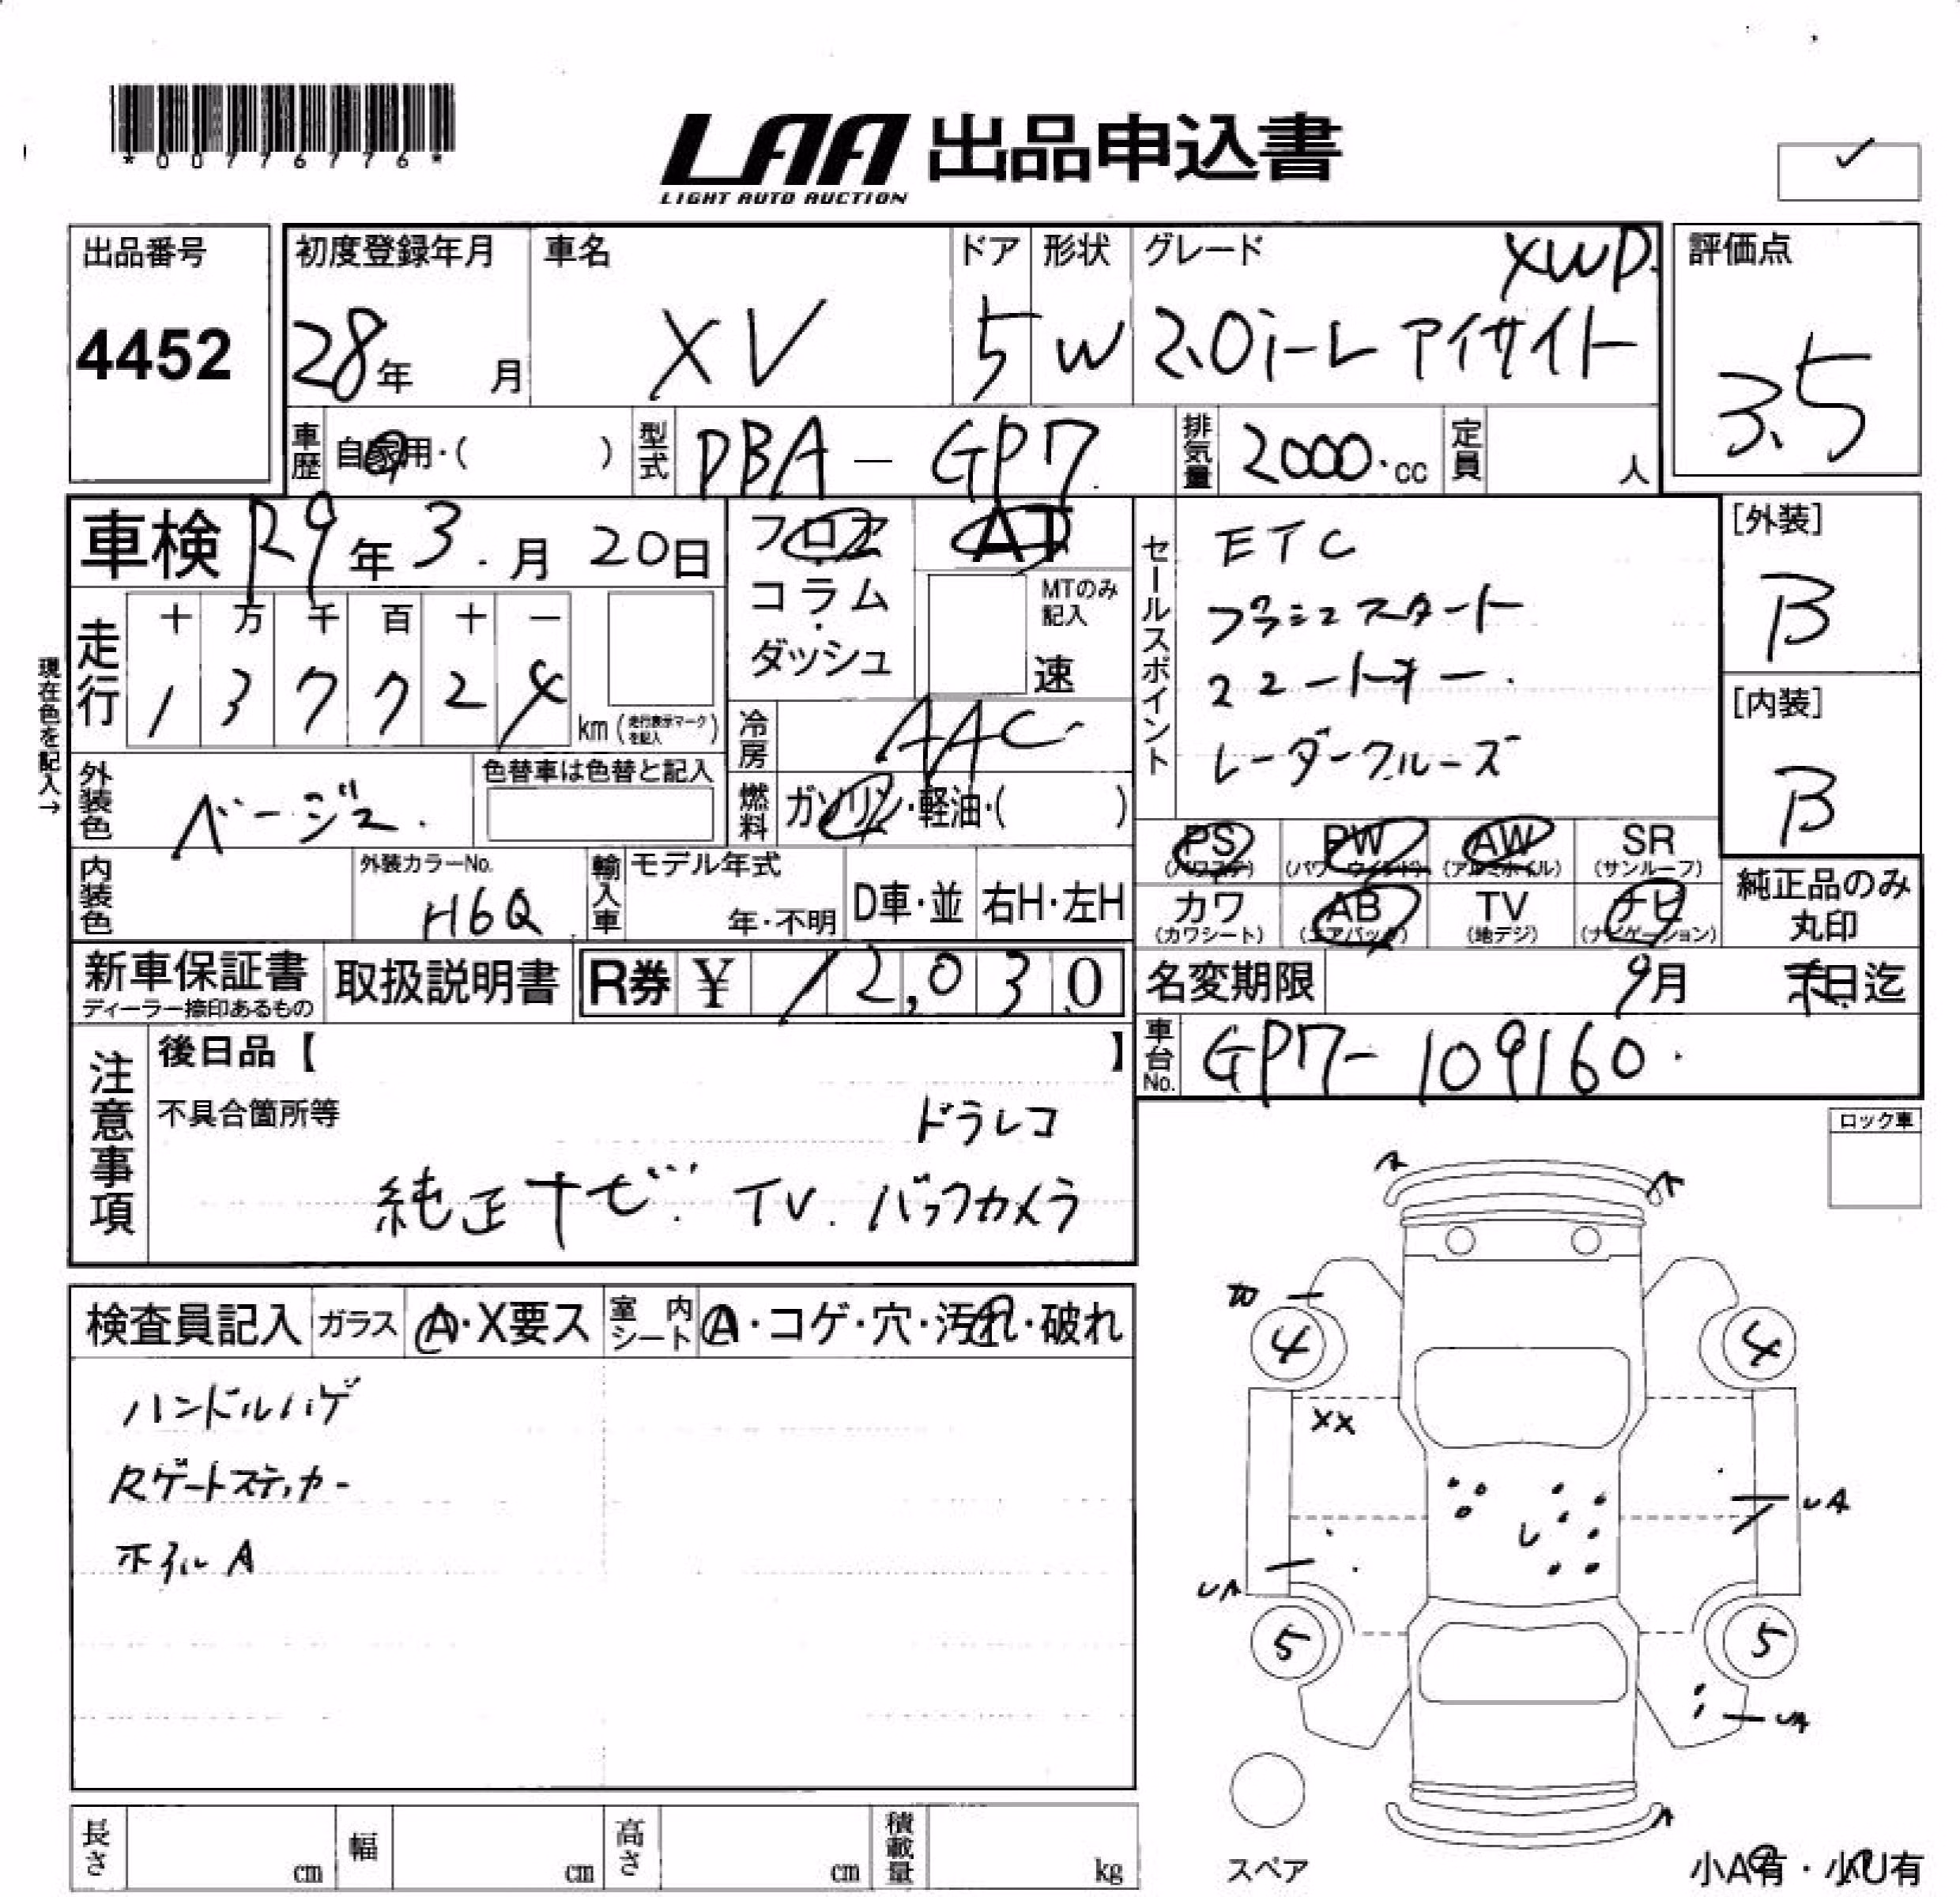 *00776776*
LAA 出品申込書
LIGHT AUTO AUCTION
✓
出品番号
4452
初度登録年月
28年 月
車名
XV
ドア
5
形状
W
グレード
XWD.
2.0i-L アイサイト
評価点
3.5
車歴
自家用・( )
型式
DBA-GP7
排気量
2000.cc
定員
人
車検 R9年3.月20日
フロア
コラム
・
ダッシュ
AT
MTのみ記入
速
セールスポイント
ETC
プッシュスタート
スマートキー.
レーダークルーズ
[外装]
B
[内装]
B
現在色を記入→
走行
十 万 千 百 十 一
1 3 7 7 2 4
km (走行表示マークを記入)
冷房
AAC
外装色
ベージュ.
色替車は色替と記入
燃料
ガソリン・軽油・( )
PS
(パワステ)
PW
(パワーウィンド)
AW
(アルミホイル)
SR
(サンルーフ)
カワ
(カワシート)
AB
(エアバック)
TV
(地デジ)
ナビ
(ナビゲーション)
純正品のみ
丸印
内装色
外装カラーNo.
H6Q
輸入車
モデル年式
年・不明
D車・並
右H・左H
新車保証書
ディーラー捺印あるもの
取扱説明書
R券 ¥ 12,030
名変期限
9月 末日迄
車台No.
GP7-109160.
注意事項
後日品【 】
不具合箇所等
ドラレコ
純正ナビ. TV. バックカメラ
ロック車
検査員記入
ガラス
A・X要ス
室内シート
A・コゲ・穴・汚れ・破れ
ハンドルハゲ
Rゲートステッカー
ホイルA
A
A
カ
4
4
XX
UA
UA
5
5
UA
A
スペア
小A有・小U有
長さ
cm
幅
cm
高さ
cm
積載量
kg